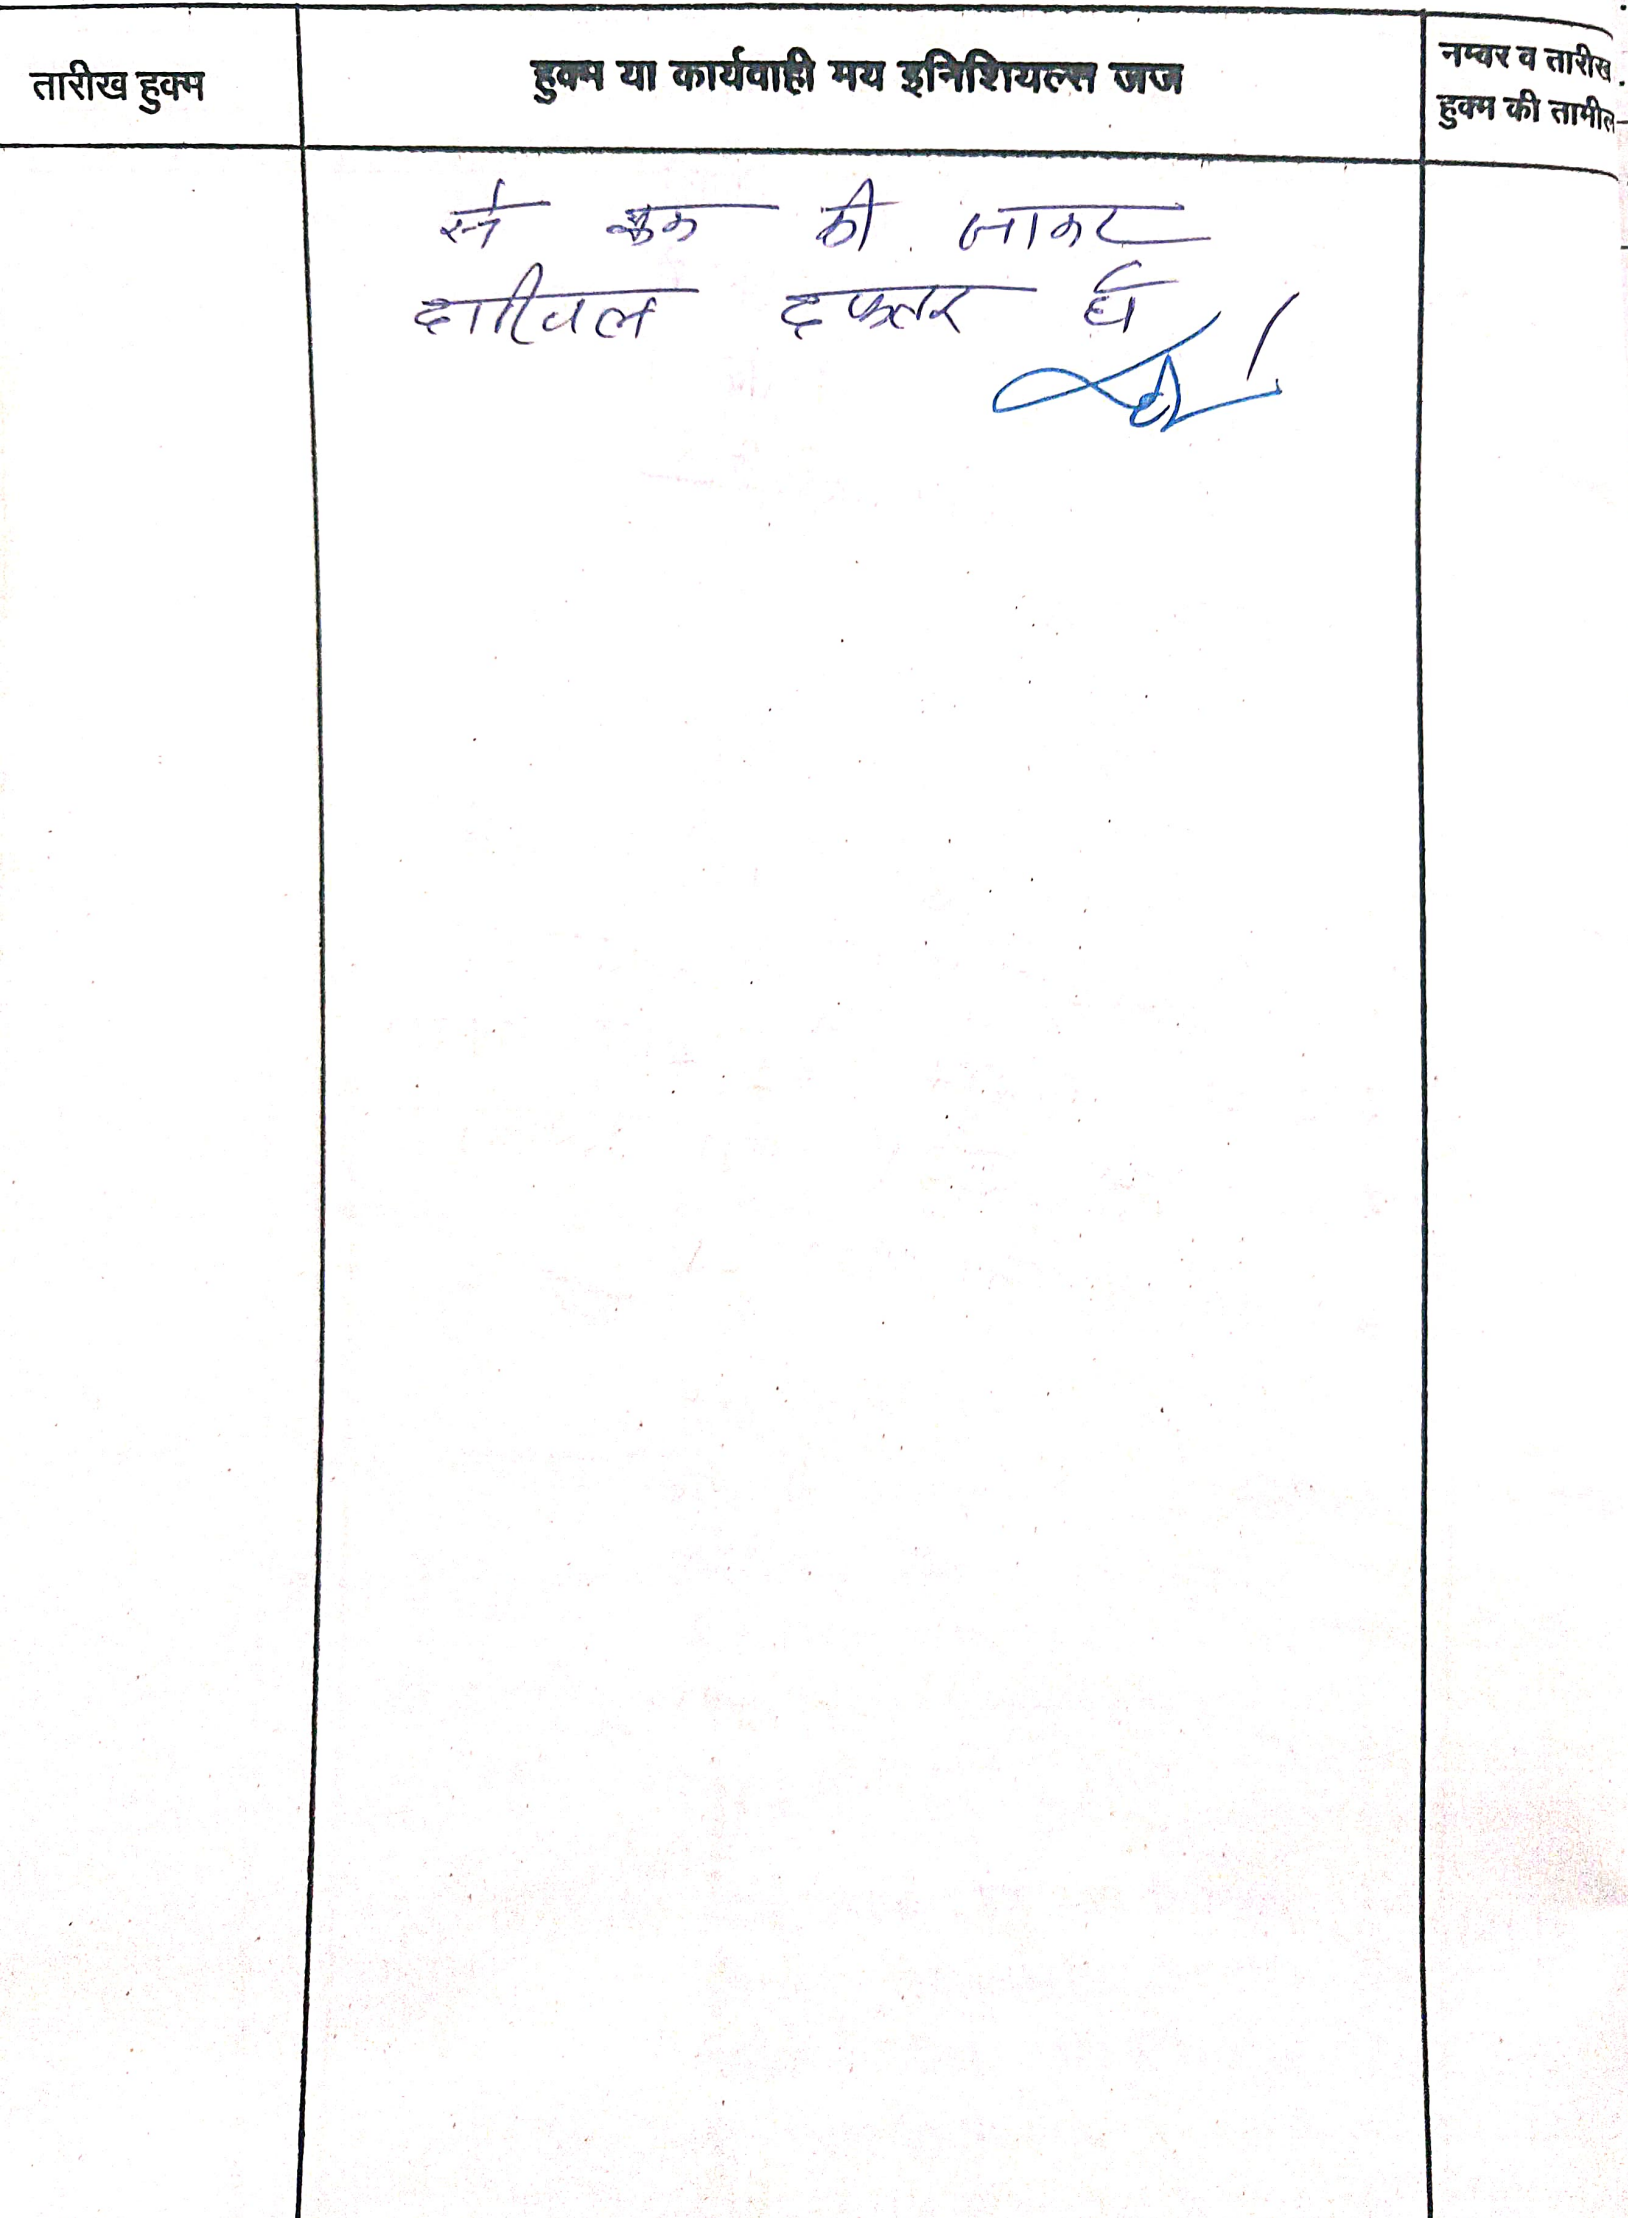 तारीख हुक्म
हुक्म या कार्यवाही मय इनिशियल्स जज
नम्बर व तारीख
हुक्म की तामील
से की जाकर
दाखिल दफ्तर हो